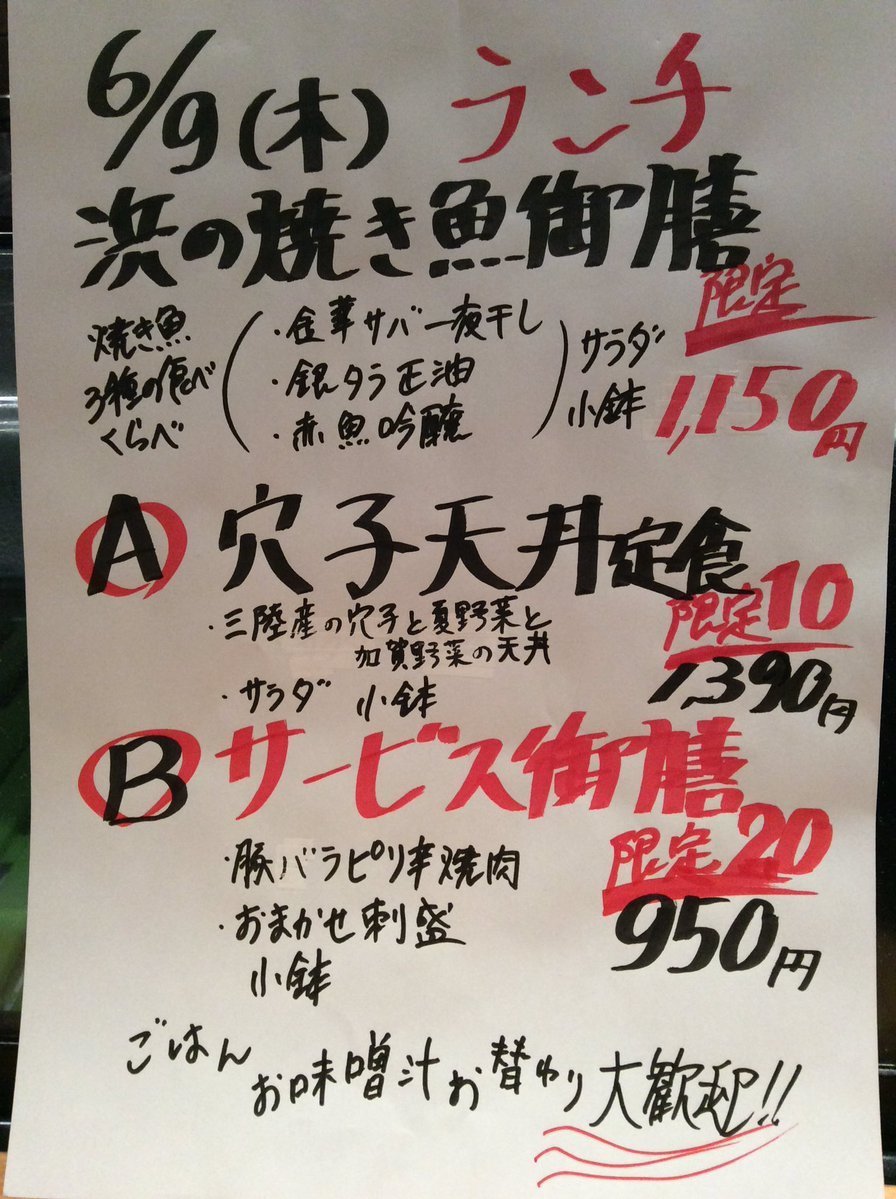 6/9(木) ランチ
浜の焼き魚御膳
限定
焼き魚
3種の食べ
くらべ
・金華サバ一夜干し
・銀タラ正油
・赤魚吟醸
サラダ
小鉢
1,150円
A 穴子天丼定食
限定10
・三陸産の穴子と夏野菜と
加賀野菜の天丼
・サラダ 小鉢
1,390円
B サービス御膳
限定20
・豚バラピリ辛焼肉
・おまかせ刺盛
小鉢
950円
ごはん
お味噌汁お替わり大歓迎!!